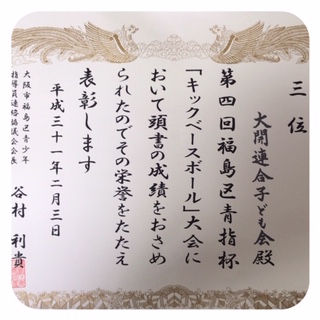 三位
大開連合子ども会殿
第四回福島区青指杯
「キックベースボール」大会に
おいて頭書の成績をおさめ
られたのでその栄誉をたたえ
表彰します
平成三十一年二月三日
大阪市福島区青少年
指導員連絡協議会会長
谷村利貴